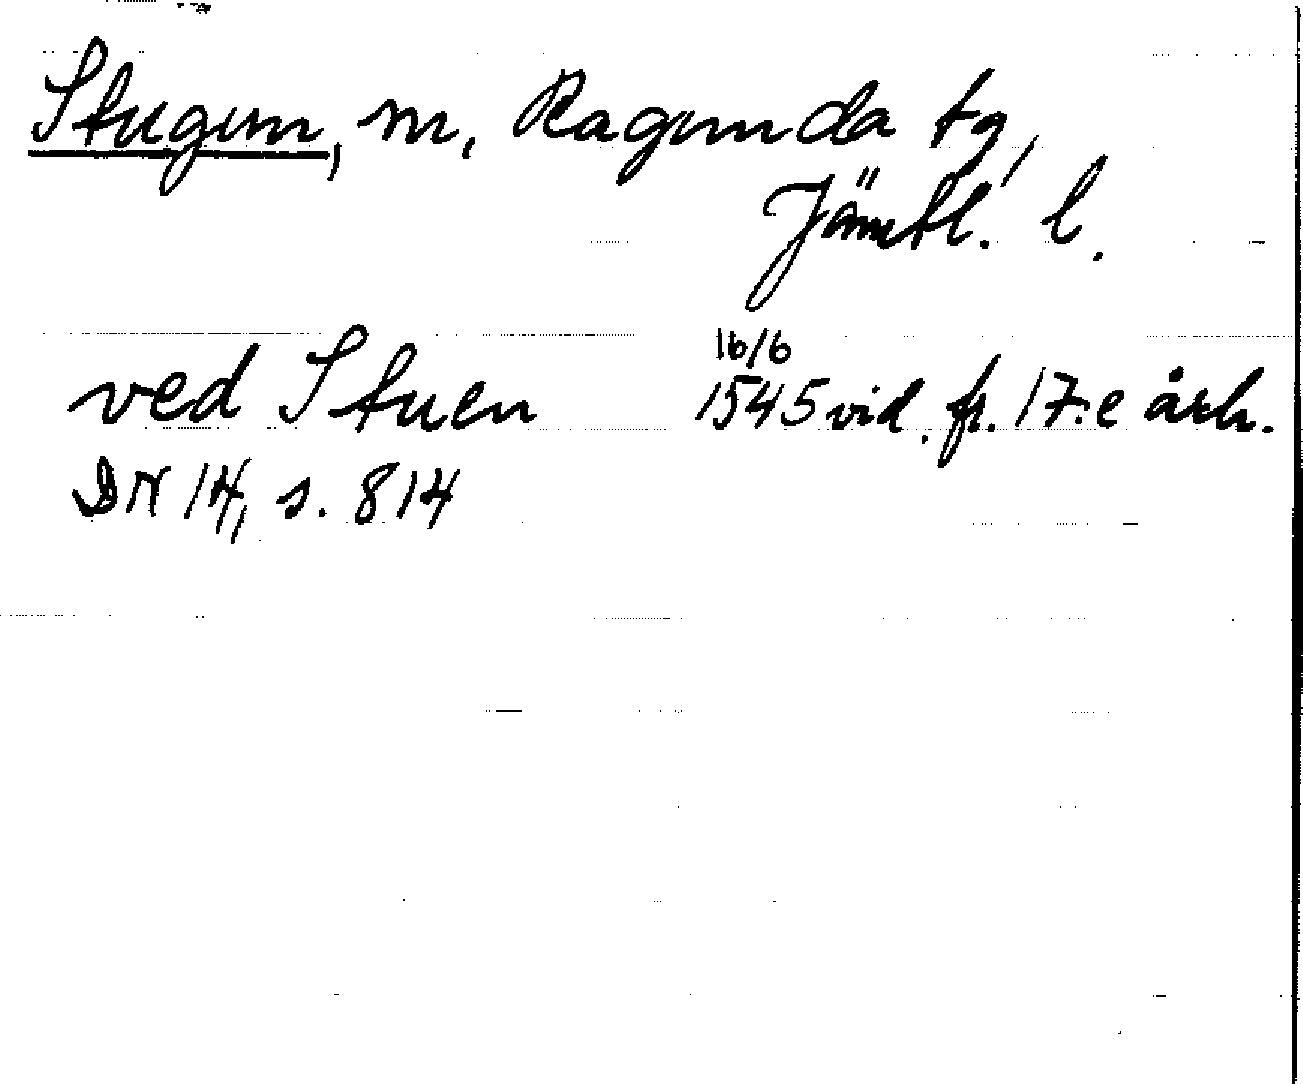 Stugun, sn, Ragunda tg,
Jämtl. l.
ved Stuen 16/6 1545 vid. fr. 17:e årh.
DN 14, s. 814